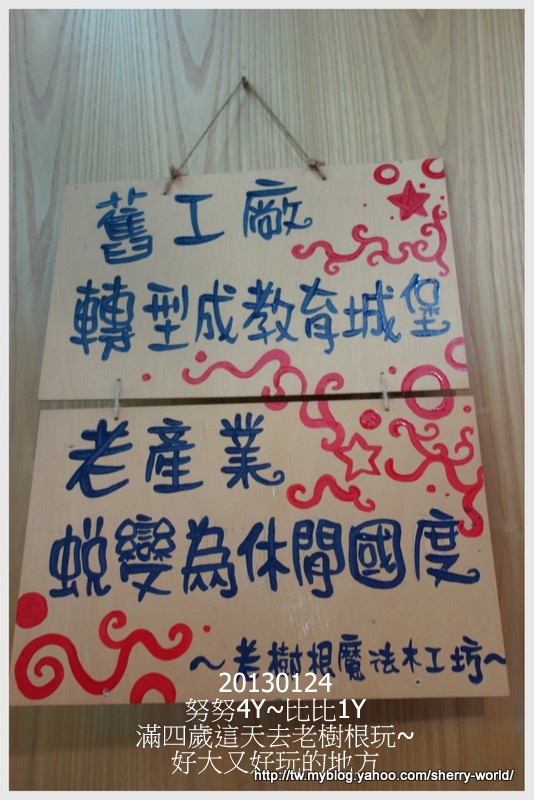 舊工廠
轉型成教育城堡
老產業
蛻變為休閒國度
～老樹根魔法木工坊～
20130124
努努4Y~比比1Y
滿四歲這天去老樹根玩~
好大又好玩的地方
http://tw.myblog.yahoo.com/sherry-world/